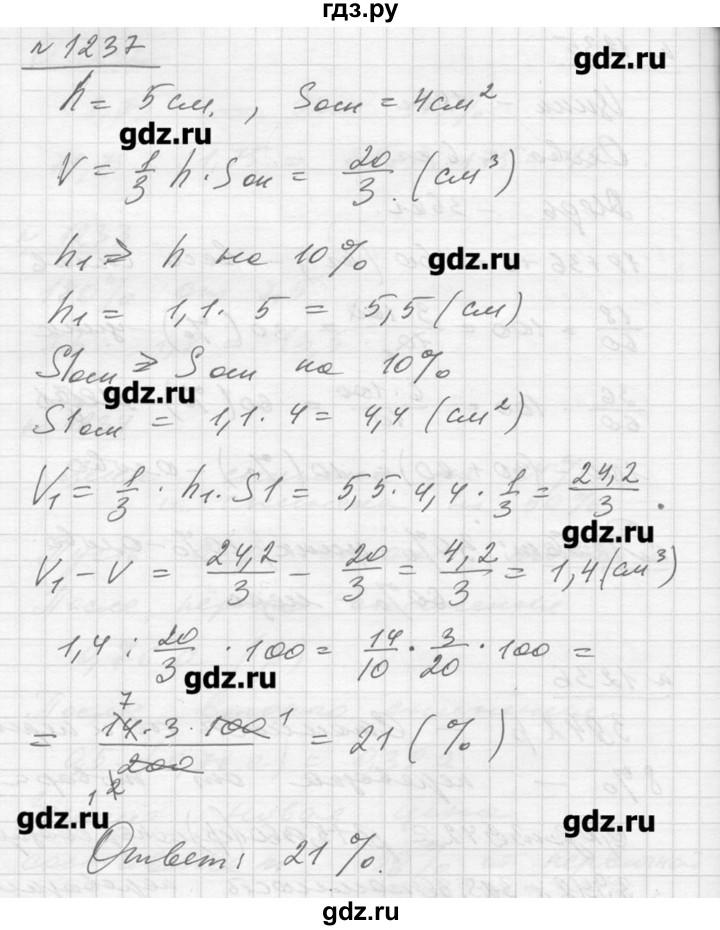 гдз.ру
№ 1237
gdz.ru
h = 5 см, Sосн = 4 см²
gdz.ru
V = 1/3 h · Sосн = 20/3 (см³)
h₁ > h на 10%
gdz.ru
h₁ = 1,1 · 5 = 5,5 (см)
S1осн > Sосн на 10%
gdz.ru
S1осн = 1,1 · 4 = 4,4 (см²)
V₁ = 1/3 · h₁ · S1 = 5,5 · 4,4 · 1/3 = 24,2/3.
gdz.ru
V₁ - V = 24,2/3 - 20/3 = 4,2/3 = 1,4 (см³)
1,4 : 20/3 · 100 = 14/10 · 3/20 · 100 =
gdz.ru
= 14 · 3 · 100/200 = 21 (%)
gdz.ru gdz.ru
Ответ: 21%.
gdz.ru